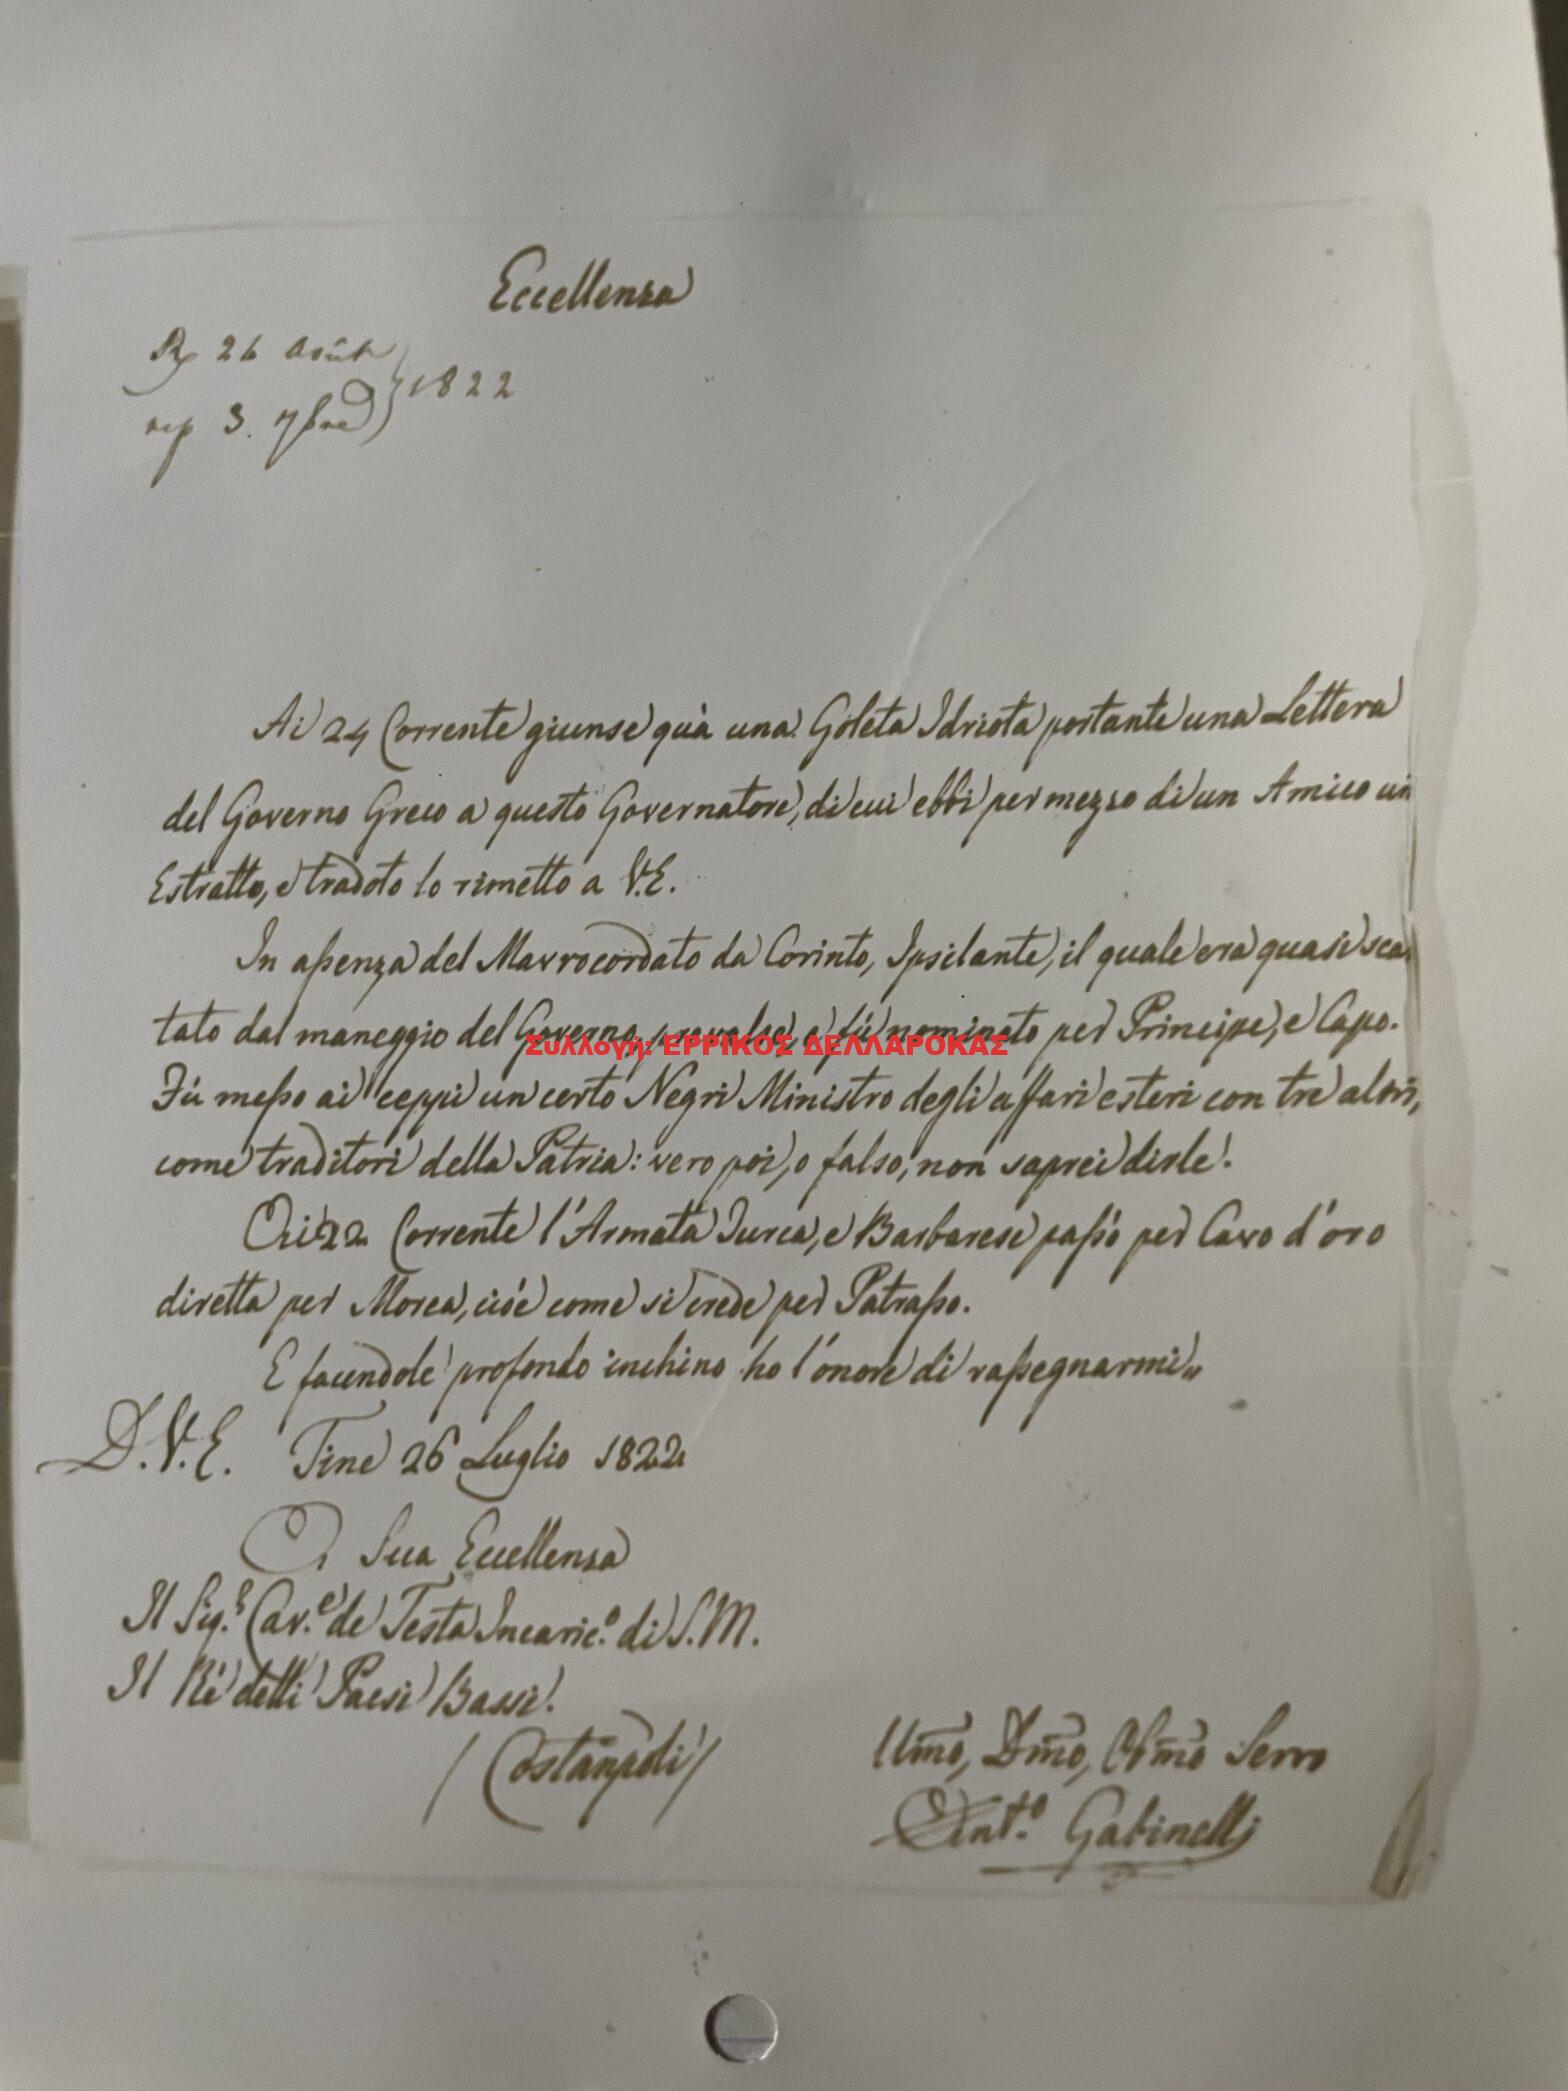 Eccellenza
R 26 Août
rep 3. 7bre } 1822
Ai 24 Corrente giunse quà una Goleta Idriota portante una Lettera
del Governo Greco a questo Governatore, di cui ebbi per mezzo di un Amico un
Estratto, e tradoto lo rimetto a V.E.
In assenza del Mavrocordato da Corinto, Ipsilante, il quale era quasi sca
tato dal maneggio del Governo, prevalse, e fù nominato per Principe, e Capo.
Fú messo ai ceppi un certo Negri Ministro degli affari esteri con tre altri,
come traditori della Patria: vero poi, o falso, non saprei dirle.
Συλλογή: ΕΡΡΙΚΟΣ ΔΕΛΛΑΡΟΚΑΣ
Ai 22 Corrente l'Armata Turca, e Barbarese passò per Cavo d'oro
diretta per Morea, cioè come si crede per Patrasso.
E facendole profondo inchino ho l'onore di rassegnarmi
D.V.E. Tine 26 Luglio 1822
A Sua Eccellenza
Il Sig.r Cav.e de Testa Incaric.o di S.M.
Il Ré delli Paesi Bassi.
/ Costanpoli /
Umo, Dmo, Obmo Servo
Ant.o Gabinelli